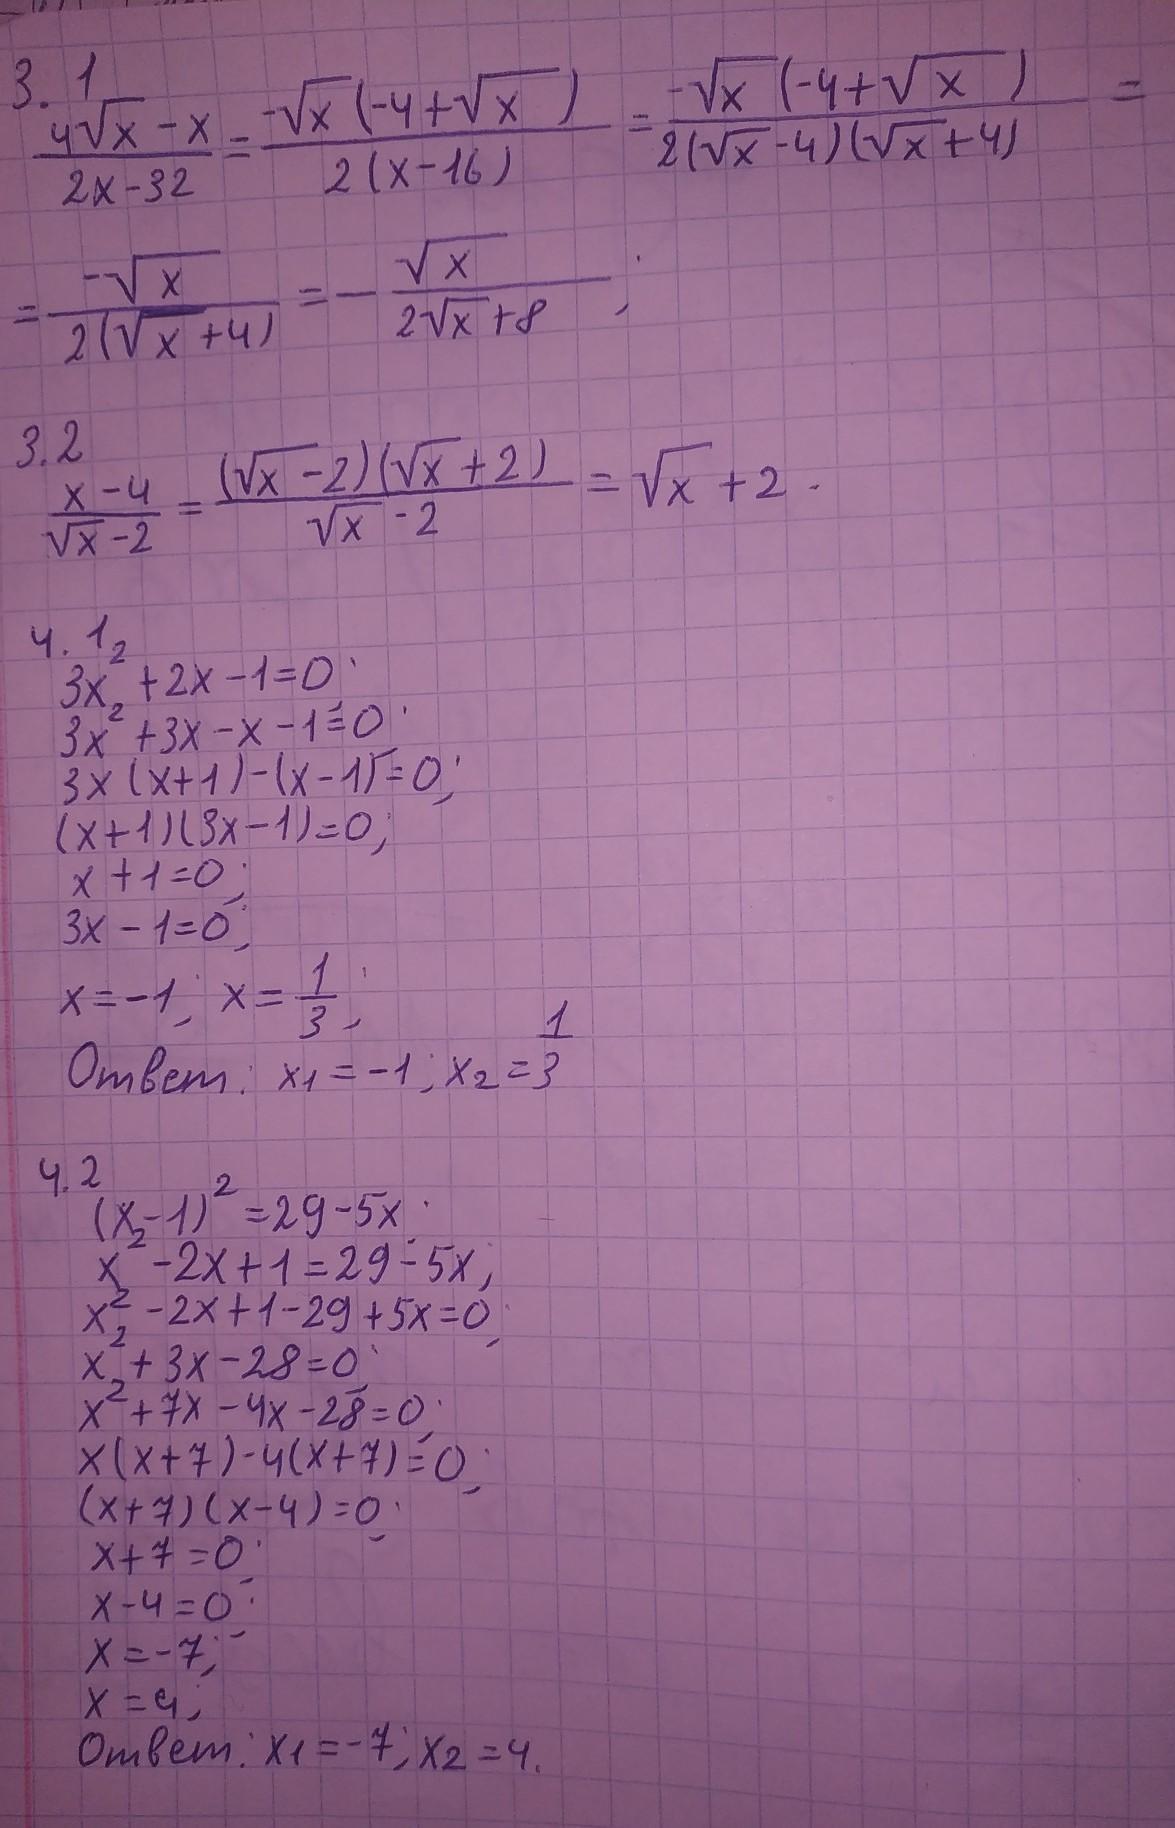 3.1
(4√x - x)/(2x - 32) = (-√x(-4+√x))/(2(x-16)) = (-√x(-4+√x))/(2(√x-4)(√x+4)) =
= (-√x)/(2(√x+4)) = - (√x)/(2√x+8);
3.2
(x-4)/(√x-2) = ((√x-2)(√x+2))/(√x-2) = √x+2.
4.1
3x²+2x-1=0;
3x²+3x-x-1=0;
3x(x+1)-(x-1)=0;
(x+1)(3x-1)=0;
x+1=0;
3x-1=0;
x=-1; x=1/3;
Ответ: x₁=-1; x₂=1/3
4.2
(x-1)²=29-5x;
x²-2x+1=29-5x;
x²-2x+1-29+5x=0;
x²+3x-28=0;
x²+7x-4x-28=0;
x(x+7)-4(x+7)=0;
(x+7)(x-4)=0;
x+7=0;
x-4=0;
x=-7;
x=4;
Ответ: x₁=-7; x₂=4.